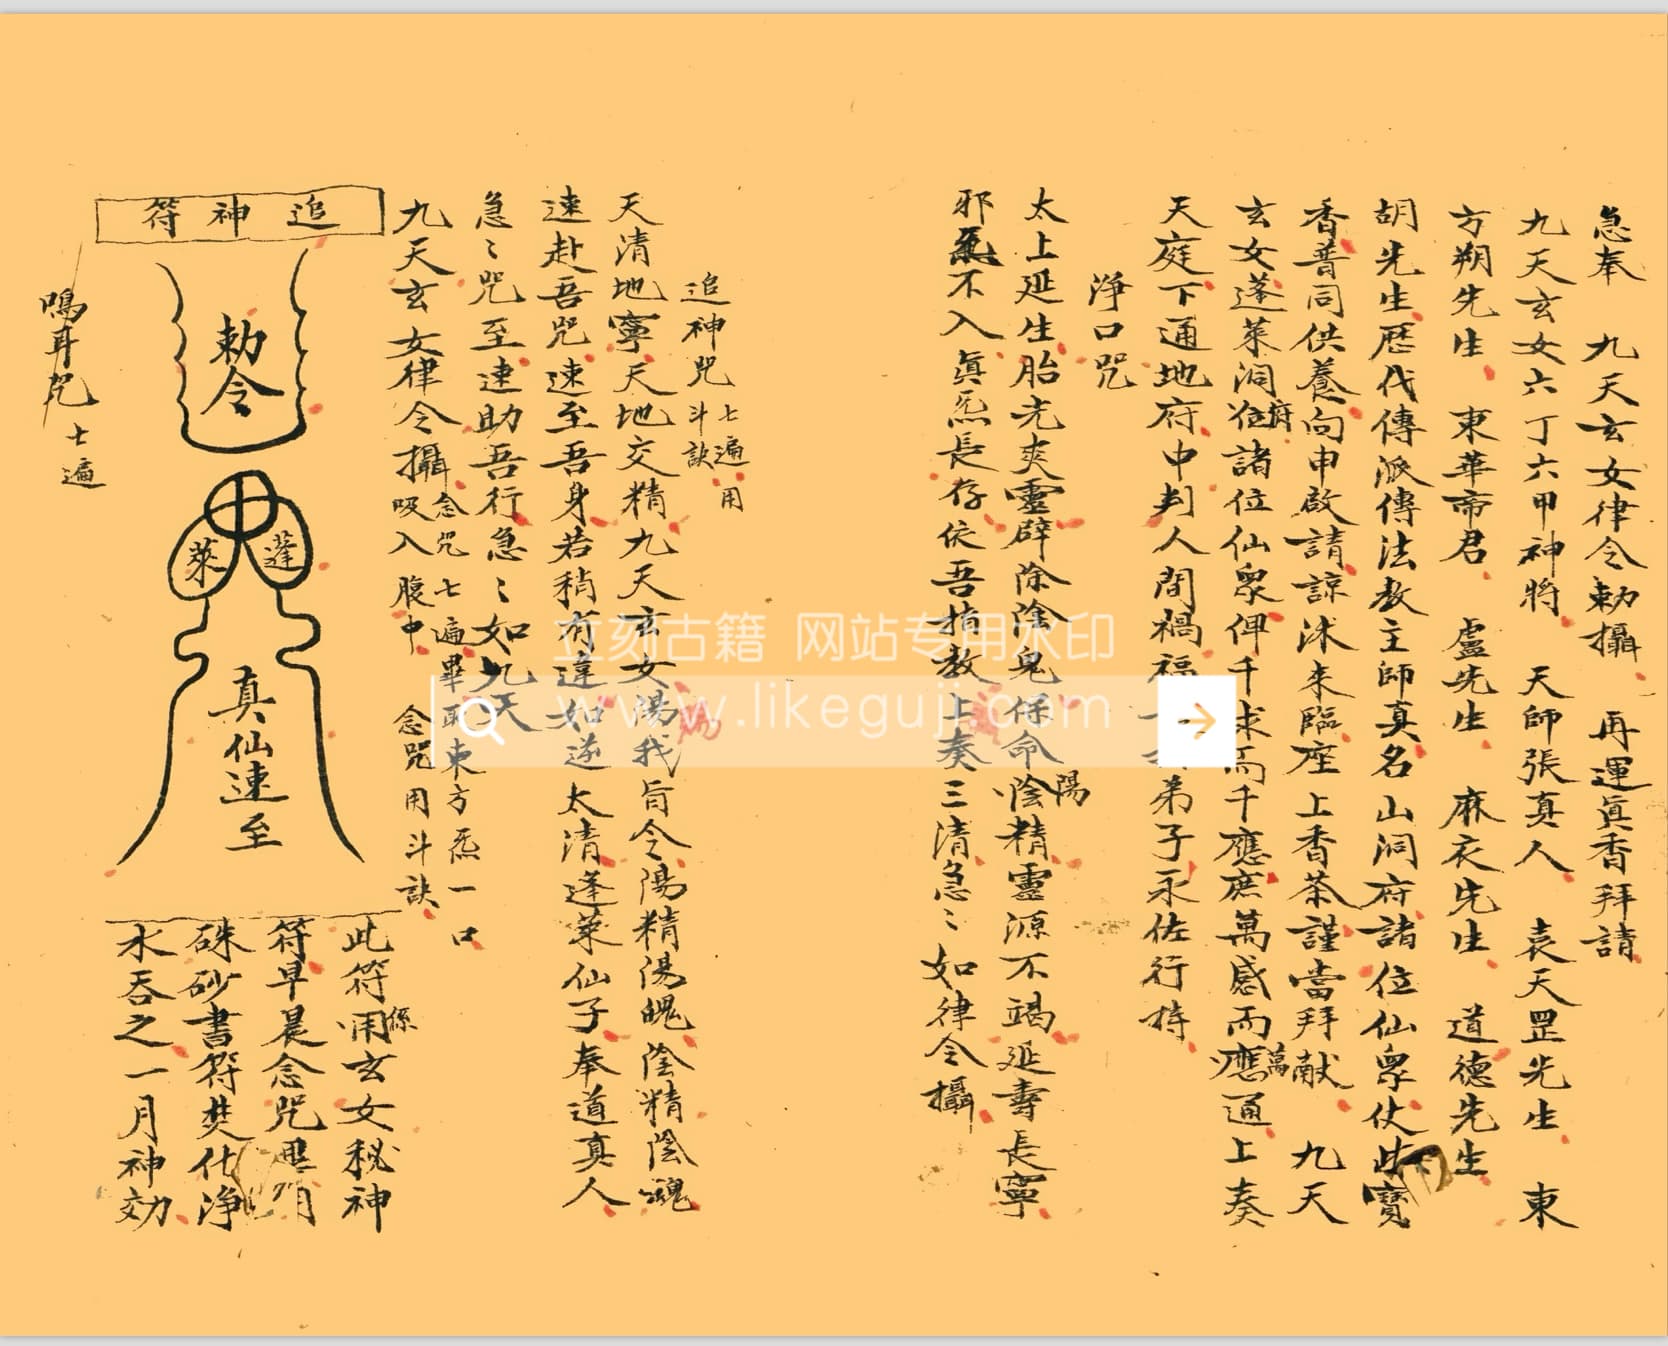 急奉 九天玄女律令勅攝 再運眞香拜請
九天玄女六丁六甲神將 天師張真人 袁天罡先生 東
方朔先生 東華帝君 盧先生 麻衣先生 道德先生
胡先生歷代傳派傳法教主師真名山洞府諸位仙眾仗此寶
香普同供養向申啟請諒沐來臨座上香茶謹當拜献 九天
玄女蓬萊洞府諸位仙眾俾千求而千應庶萬感而萬應通上奏
天庭下通地府中判人間禍福 弟子永佐行持
淨口咒
太上延生胎光爽靈辟除陰鬼保命陽陰精靈源不竭延壽長寧
邪炁不入眞炁長存依吾指教上奏三清急〻如律令攝
追神咒 七遍用斗訣
天清地寧天地交精九天玄女陽我旨令陽精陽魄陰精陰魂
速赴吾咒速至吾身若稍有違如逐太清逢萊仙子奉道真人
急〻咒至速助吾行急〻如九天
九天玄女律令攝 念咒七遍畢取東方炁一口
吸入腹中 念咒用斗訣
追神符
勅令
蓬萊
真仙速至
此符係用玄女秘神
符早晨念咒畢用
硃砂書符焚化淨
水吞之一月神効
鳴耳咒 七遍
立刻古籍 网站专用水印
www.likeguji.com